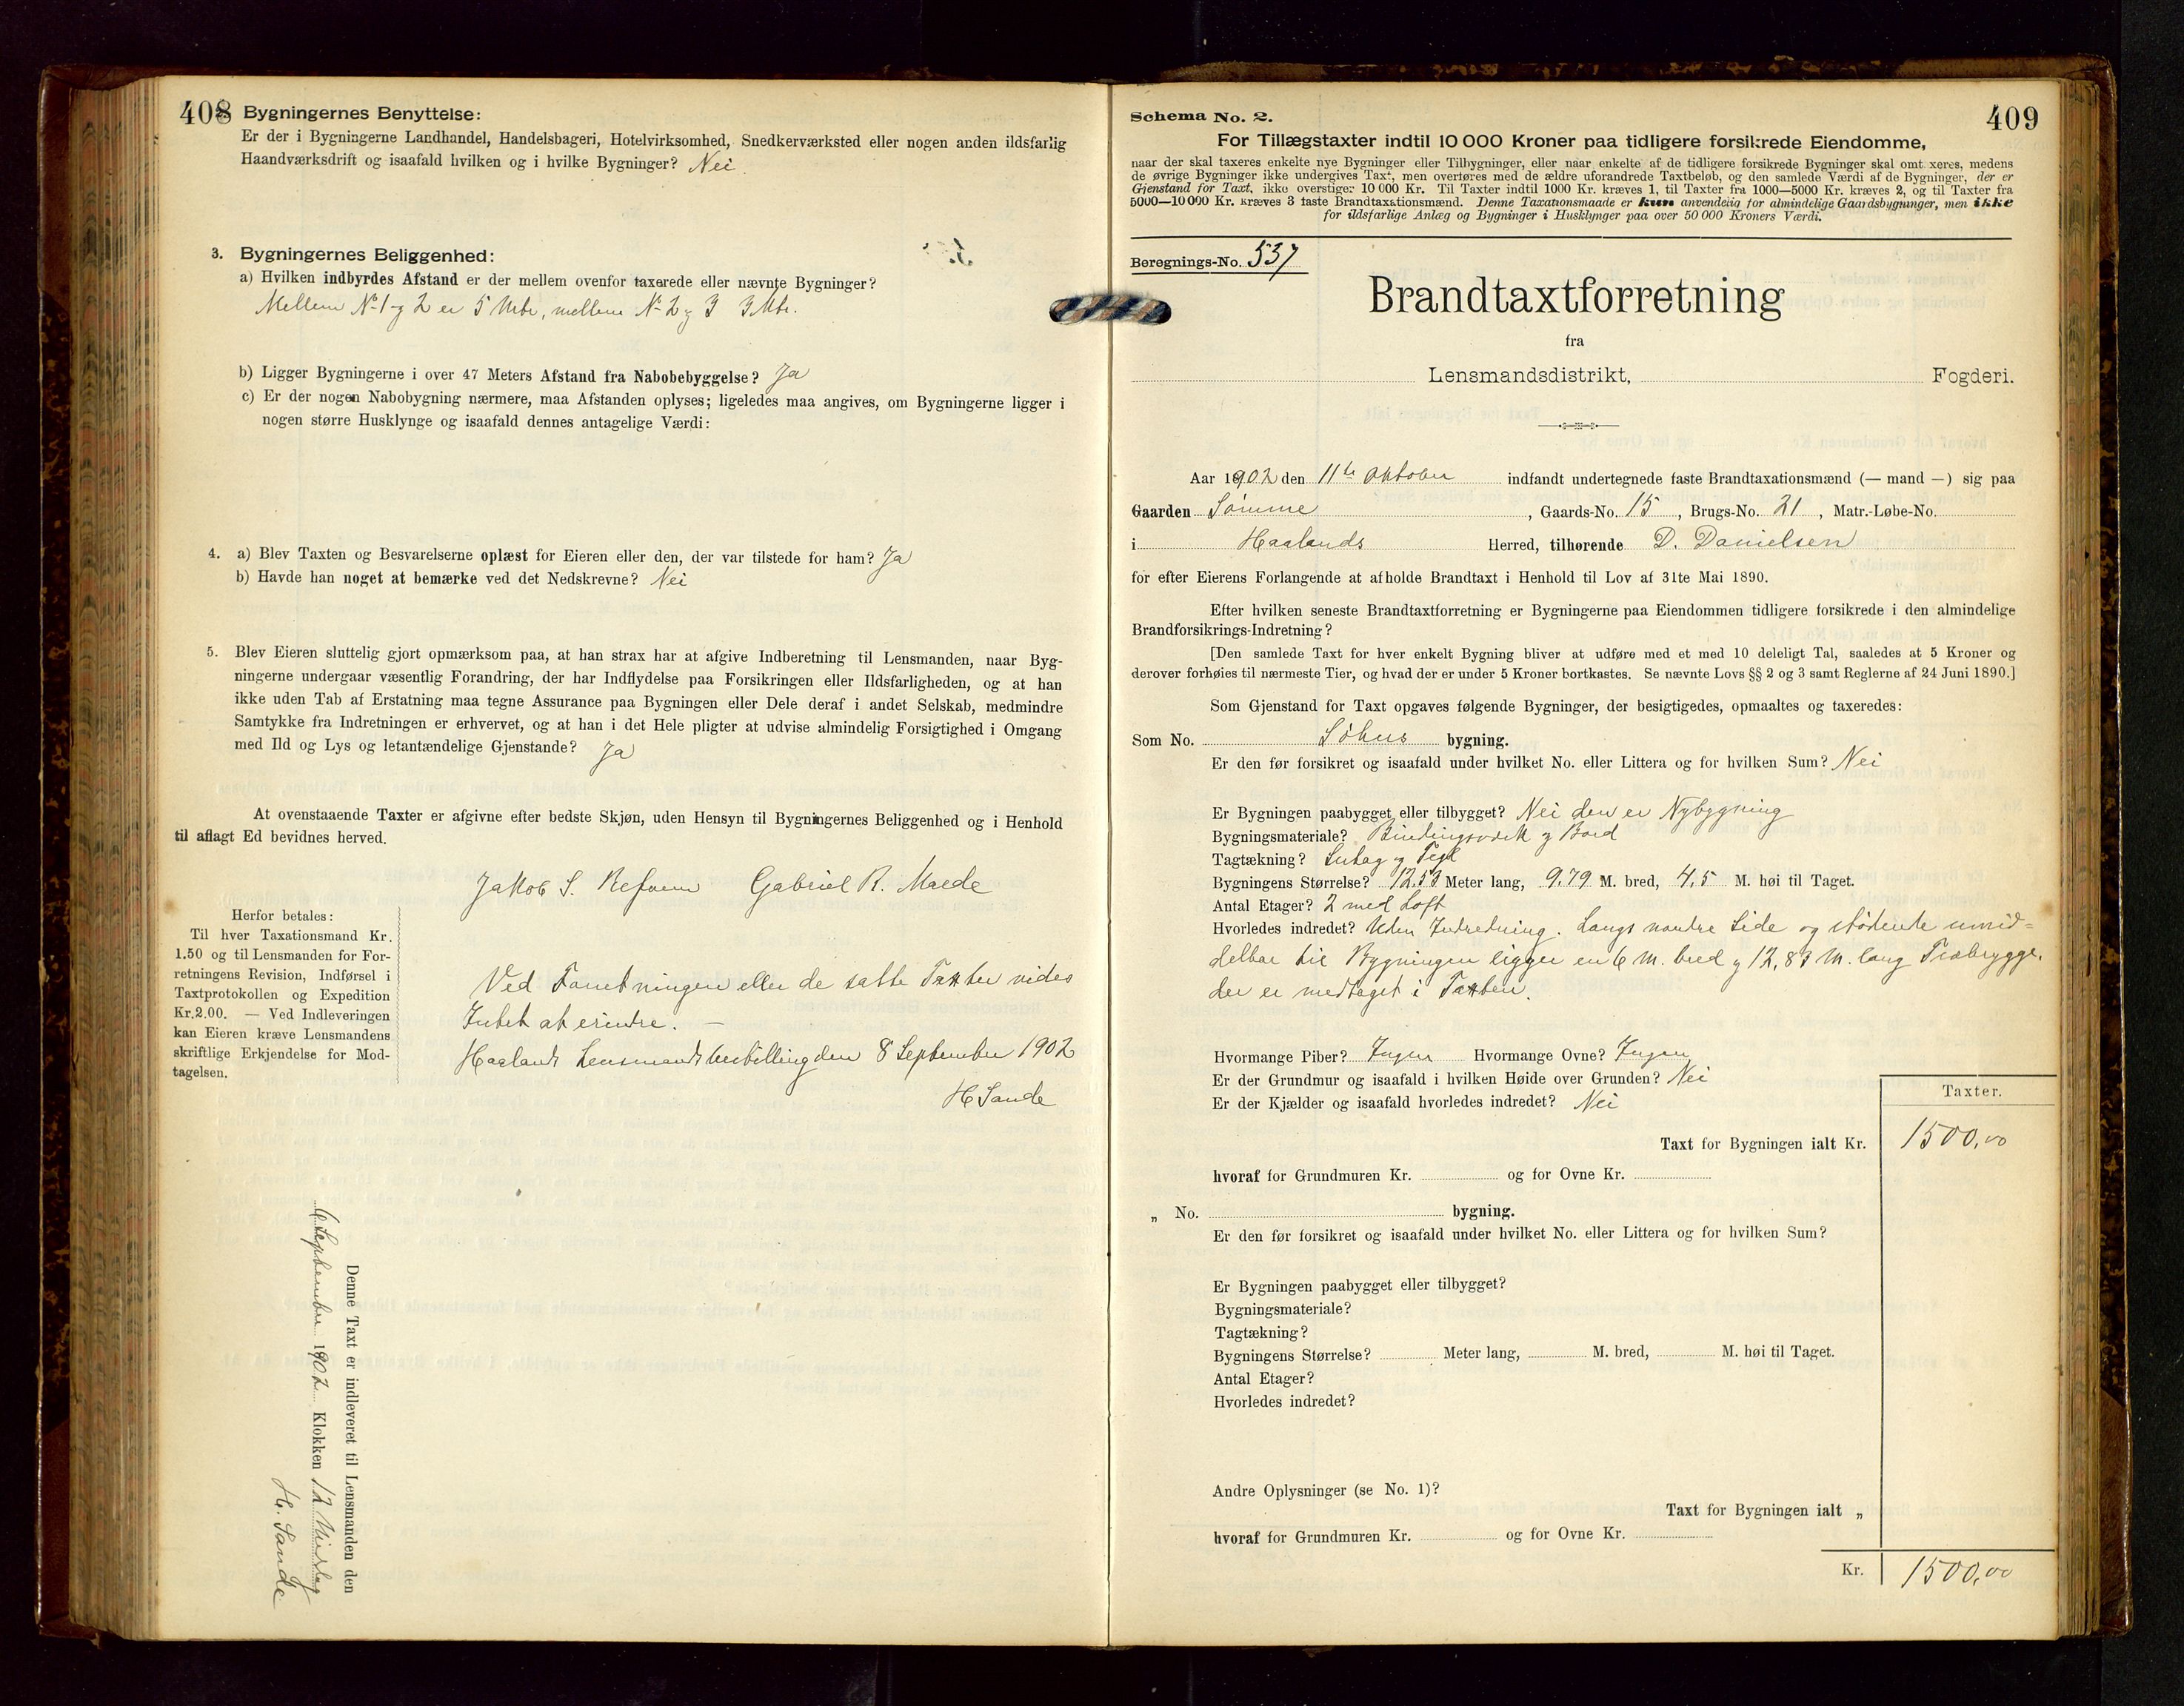 408 Bygningernes Benyttelse:
Er der i Bygningerne Landhandel, Handelsbageri, Hotelvirksomhed, Snedkerværksted eller nogen anden ildsfarlig
Haandværksdrift og isaafald hvilken og i hvilke Bygninger? Nei.
3. Bygningernes Beliggenhed:
a) Hvilken indbyrdes Afstand er der mellem ovenfor taxerede eller nævnte Bygninger?
Mellem No 1 og 2 er 5 Mtr, mellem No 2 og 3 3 Mtr.
b) Ligger Bygningerne i over 47 Meters Afstand fra Nabobebyggelse? Ja
c) Er der nogen Nabobygning nærmere, maa Afstanden oplyses; ligeledes maa angives, om Bygningerne ligger i
nogen større Husklynge og isaafald dennes antagelige Værdi:
4. a) Blev Taxten og Besvarelserne oplæst for Eieren eller den, der var tilstede for ham? Ja
b) Havde han noget at bemærke ved det Nedskrevne? Nei
5. Blev Eieren sluttelig gjort opmærksom paa, at han strax har at afgive Indberetning til Lensmanden, naar Byg-
ningerne undergaar væsentlig Forandring, der har Indflydelse paa Forsikringen eller Ildsfarligheden, og at han
ikke uden Tab af Erstatning maa tegne Assurance paa Bygningen eller Dele deraf i andet Selskab, medmindre
Samtykke fra Indretningen er erhvervet, og at han i det Hele pligter at udvise almindelig Forsigtighed i Omgang
med Ild og Lys og letantændelige Gjenstande? Ja
At ovenstaaende Taxter er afgivne efter bedste Skjøn, uden Hensyn til Bygningernes Beliggenhed og i Henhold
til aflagt Ed bevidnes herved.
Jakob S. Gabriel R. Maede
Herfor betales:
Til hver Taxationsmand Kr.
1.50 og til Lensmanden for For-
retningens Revision, Indførsel i
Taxtprotokollen og Expedition
Kr.2.00. — Ved Indleveringen
kan Eieren kræve Lensmandens
skriftlige Erkjendelse for Mod-
tagelsen.
Ved Forretningen eller de satte Taxter vides
Intet at erindre. —
Haalands Lensmandsbestilling den 8 September 1902
H Sande
Denne Taxt er indleveret til Lensmanden den
6 September 1902 Klokken 12 Middag
H. Sande
409
Schema No. 2.
For Tillægstaxter indtil 10 000 Kroner paa tidligere forsikrede Eiendomme,
naar der skal taxeres enkelte nye Bygninger eller Tilbygninger, eller naar enkelte af de tidligere forsikrede Bygninger skal omt xeres, medens
de øvrige Bygninger ikke undergives Taxt, men overføres med de ældre uforandrede Taxtbeløb, og den samlede Værdi af de Bygninger, der er
Gjenstand for Taxt, ikke overstiger 10 000 Kr. Til Taxter indtil 1000 Kr. kræves 1, til Taxter fra 1000—5000 Kr. kræves 2, og til Taxter fra
5000—10 000 Kr. kræves 3 faste Brandtaxationsmænd. Denne Taxationsmaade er kun anvendelig for almindelige Gaardsbygninger, men ikke
for ildsfarlige Anlæg og Bygninger i Husklynger paa over 50 000 Kroners Værdi.
Beregnings-No. 537
Brandtaxtforretning
fra
Lensmandsdistrikt, Fogderi.
Aar 1902 den 11te Oktober indfandt undertegnede faste Brandtaxationsmænd (— mand —) sig paa
Gaarden Sømme, Gaards-No. 15, Brugs-No. 21, Matr.-Løbe-No.
i Haalands Herred, tilhørende D. Danielsen
for efter Eierens Forlangende at afholde Brandtaxt i Henhold til Lov af 31te Mai 1890.
Efter hvilken seneste Brandtaxtforretning er Bygningerne paa Eiendommen tidligere forsikrede i den almindelige
Brandforsikrings-Indretning?
[Den samlede Taxt for hver enkelt Bygning bliver at udføre med et med 10 deleligt Tal, saaledes at 5 Kroner og
derover forhøies til nærmeste Tier, og hvad der er under 5 Kroner bortkastes. Se nævnte Lovs §§ 2 og 3 samt Reglerne af 24 Juni 1890.]
Som Gjenstand for Taxt opgaves følgende Bygninger, der besigtigedes, opmaaltes og taxeredes:
Som No. Søhus bygning.
Er den før forsikret og isaafald under hvilket No. eller Littera og for hvilken Sum? Nei
Er Bygningen paabygget eller tilbygget? Nei den er Nybygning
Bygningsmateriale? Bindingsværk og Bord
Tagtækning? Sutag og Tegl
Bygningens Størrelse? 12.53 Meter lang, 9.79 M. bred, 4,5 M. høi til Taget.
Antal Etager? 2 med Loft
Hvorledes indredet? Uden Indredning. Langs nordre Side og stødende umid-
delbar til Bygningen ligger en 6 m. bred og 12,83 m. lang Træbrygge,
der er medtaget i Taxten.
Hvormange Piber? Ingen Hvormange Ovne? Ingen
Er der Grundmur og isaafald i hvilken Høide over Grunden? Nei
Er der Kjælder og isaafald hvorledes indredet? Nei
Taxter.
Taxt for Bygningen ialt Kr. 1500,00
hvoraf for Grundmuren Kr. og for Ovne Kr.
„ No. bygning.
Er den før forsikret og isaafald under hvilket No. eller Littera og for hvilken Sum?
Er Bygningen paabygget eller tilbygget?
Bygningsmateriale?
Tagtækning?
Bygningens Størrelse? Meter lang, M. bred, M. høi til Taget.
Antal Etager?
Hvorledes indredet?
Andre Oplysninger (se No. 1)?
Taxt for Bygningen ialt „
hvoraf for Grundmuren Kr. og for Ovne Kr.
Kr. 1500,00